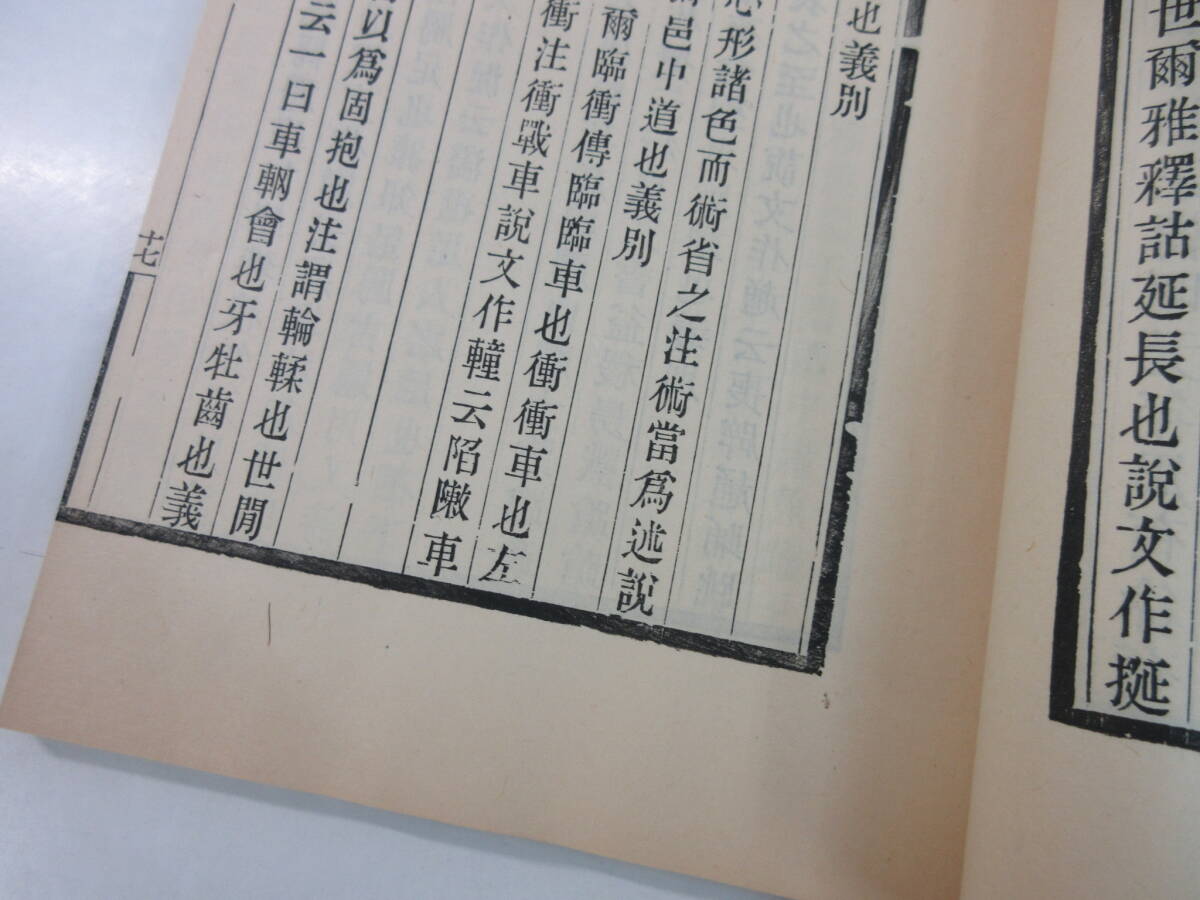 世爾雅釋詁延長也說文作挻
也義別
心形諸色而術省之注術當爲述說
邑中道也義別
爾臨衝傳臨臨車也衝衝車也左
衝注衝戰車說文作𨎴云陷敶車
以爲固抱也注謂輪輮也世閒
云一曰車輞會也牙牡齒也義
十七